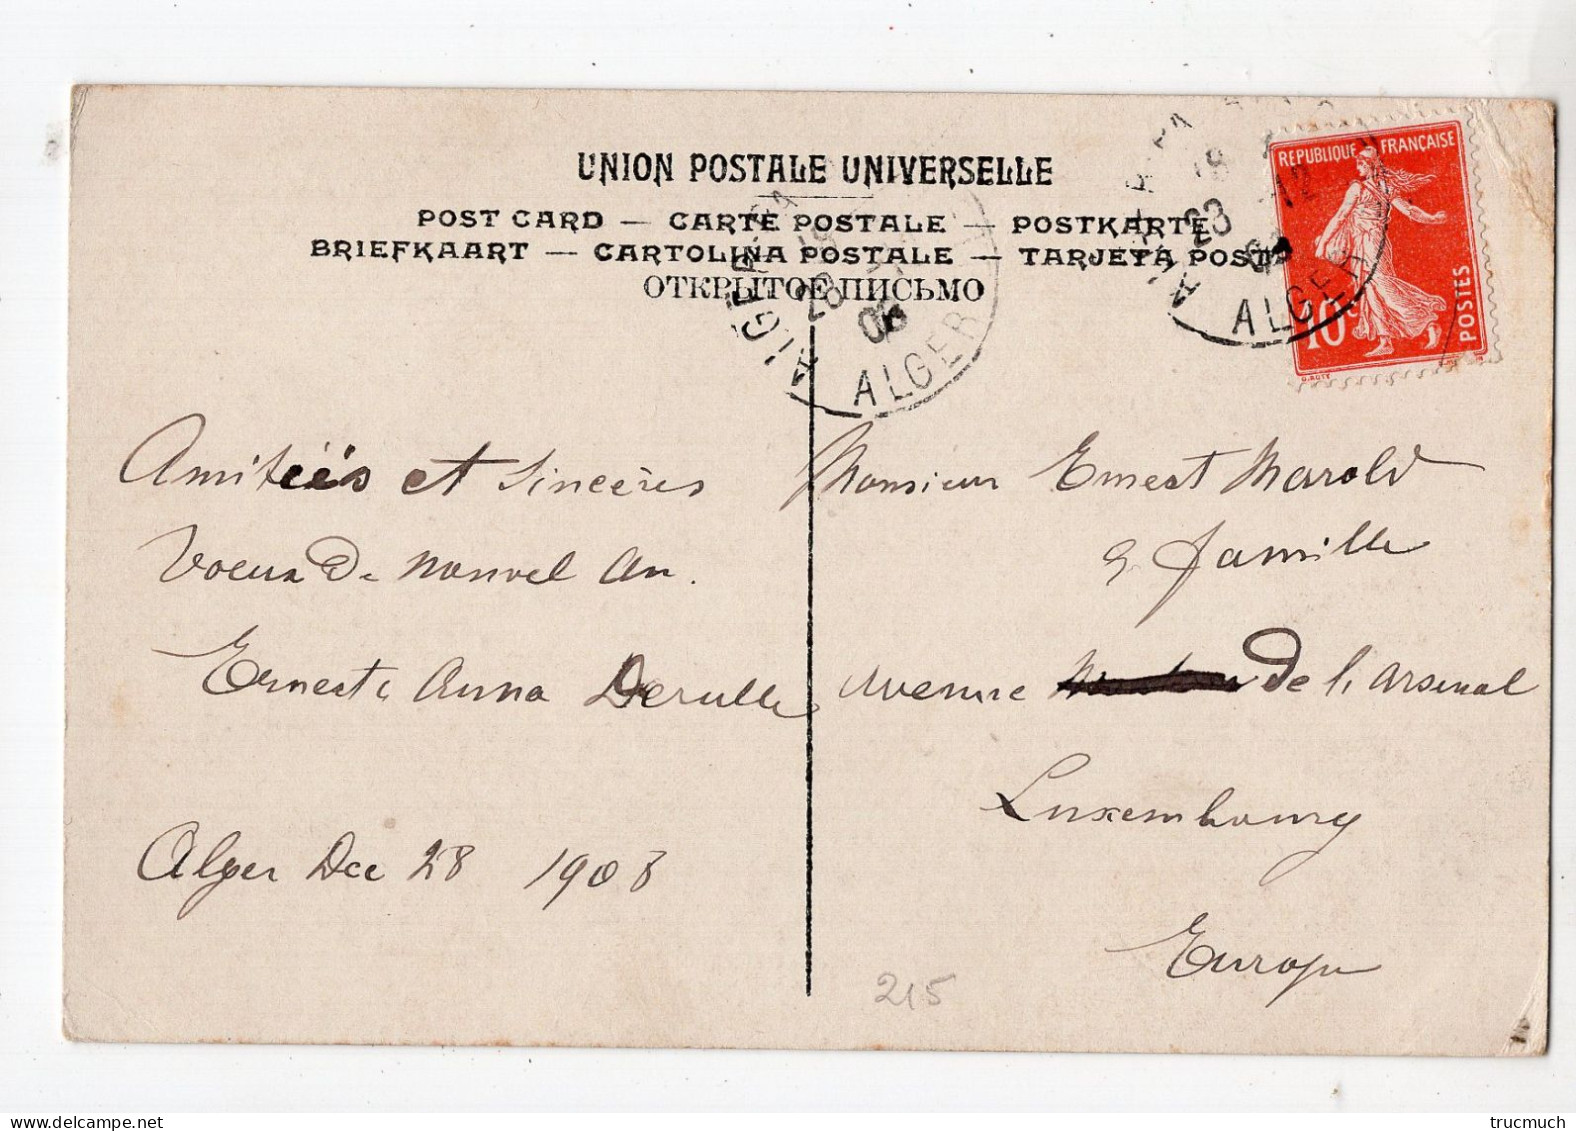 UNION POSTALE UNIVERSELLE
POST CARD — CARTE POSTALE — POSTKARTE
BRIEFKAART — CARTOLINA POSTALE — TARJETA POST
ОТКРЫТОЕ ПИСЬМО
REPUBLIQUE FRANÇAISE
10c
POSTES
ALGER
ALGER
Amitiés et Sincères
Voeux De Nouvel An.
Ernest & Anna Derulle
Alger Dec 28 1908
Monsieur Ernest Marold
& famille
Avenue De l'Arsenal
Luxembourg
Europe
215
trucmuch